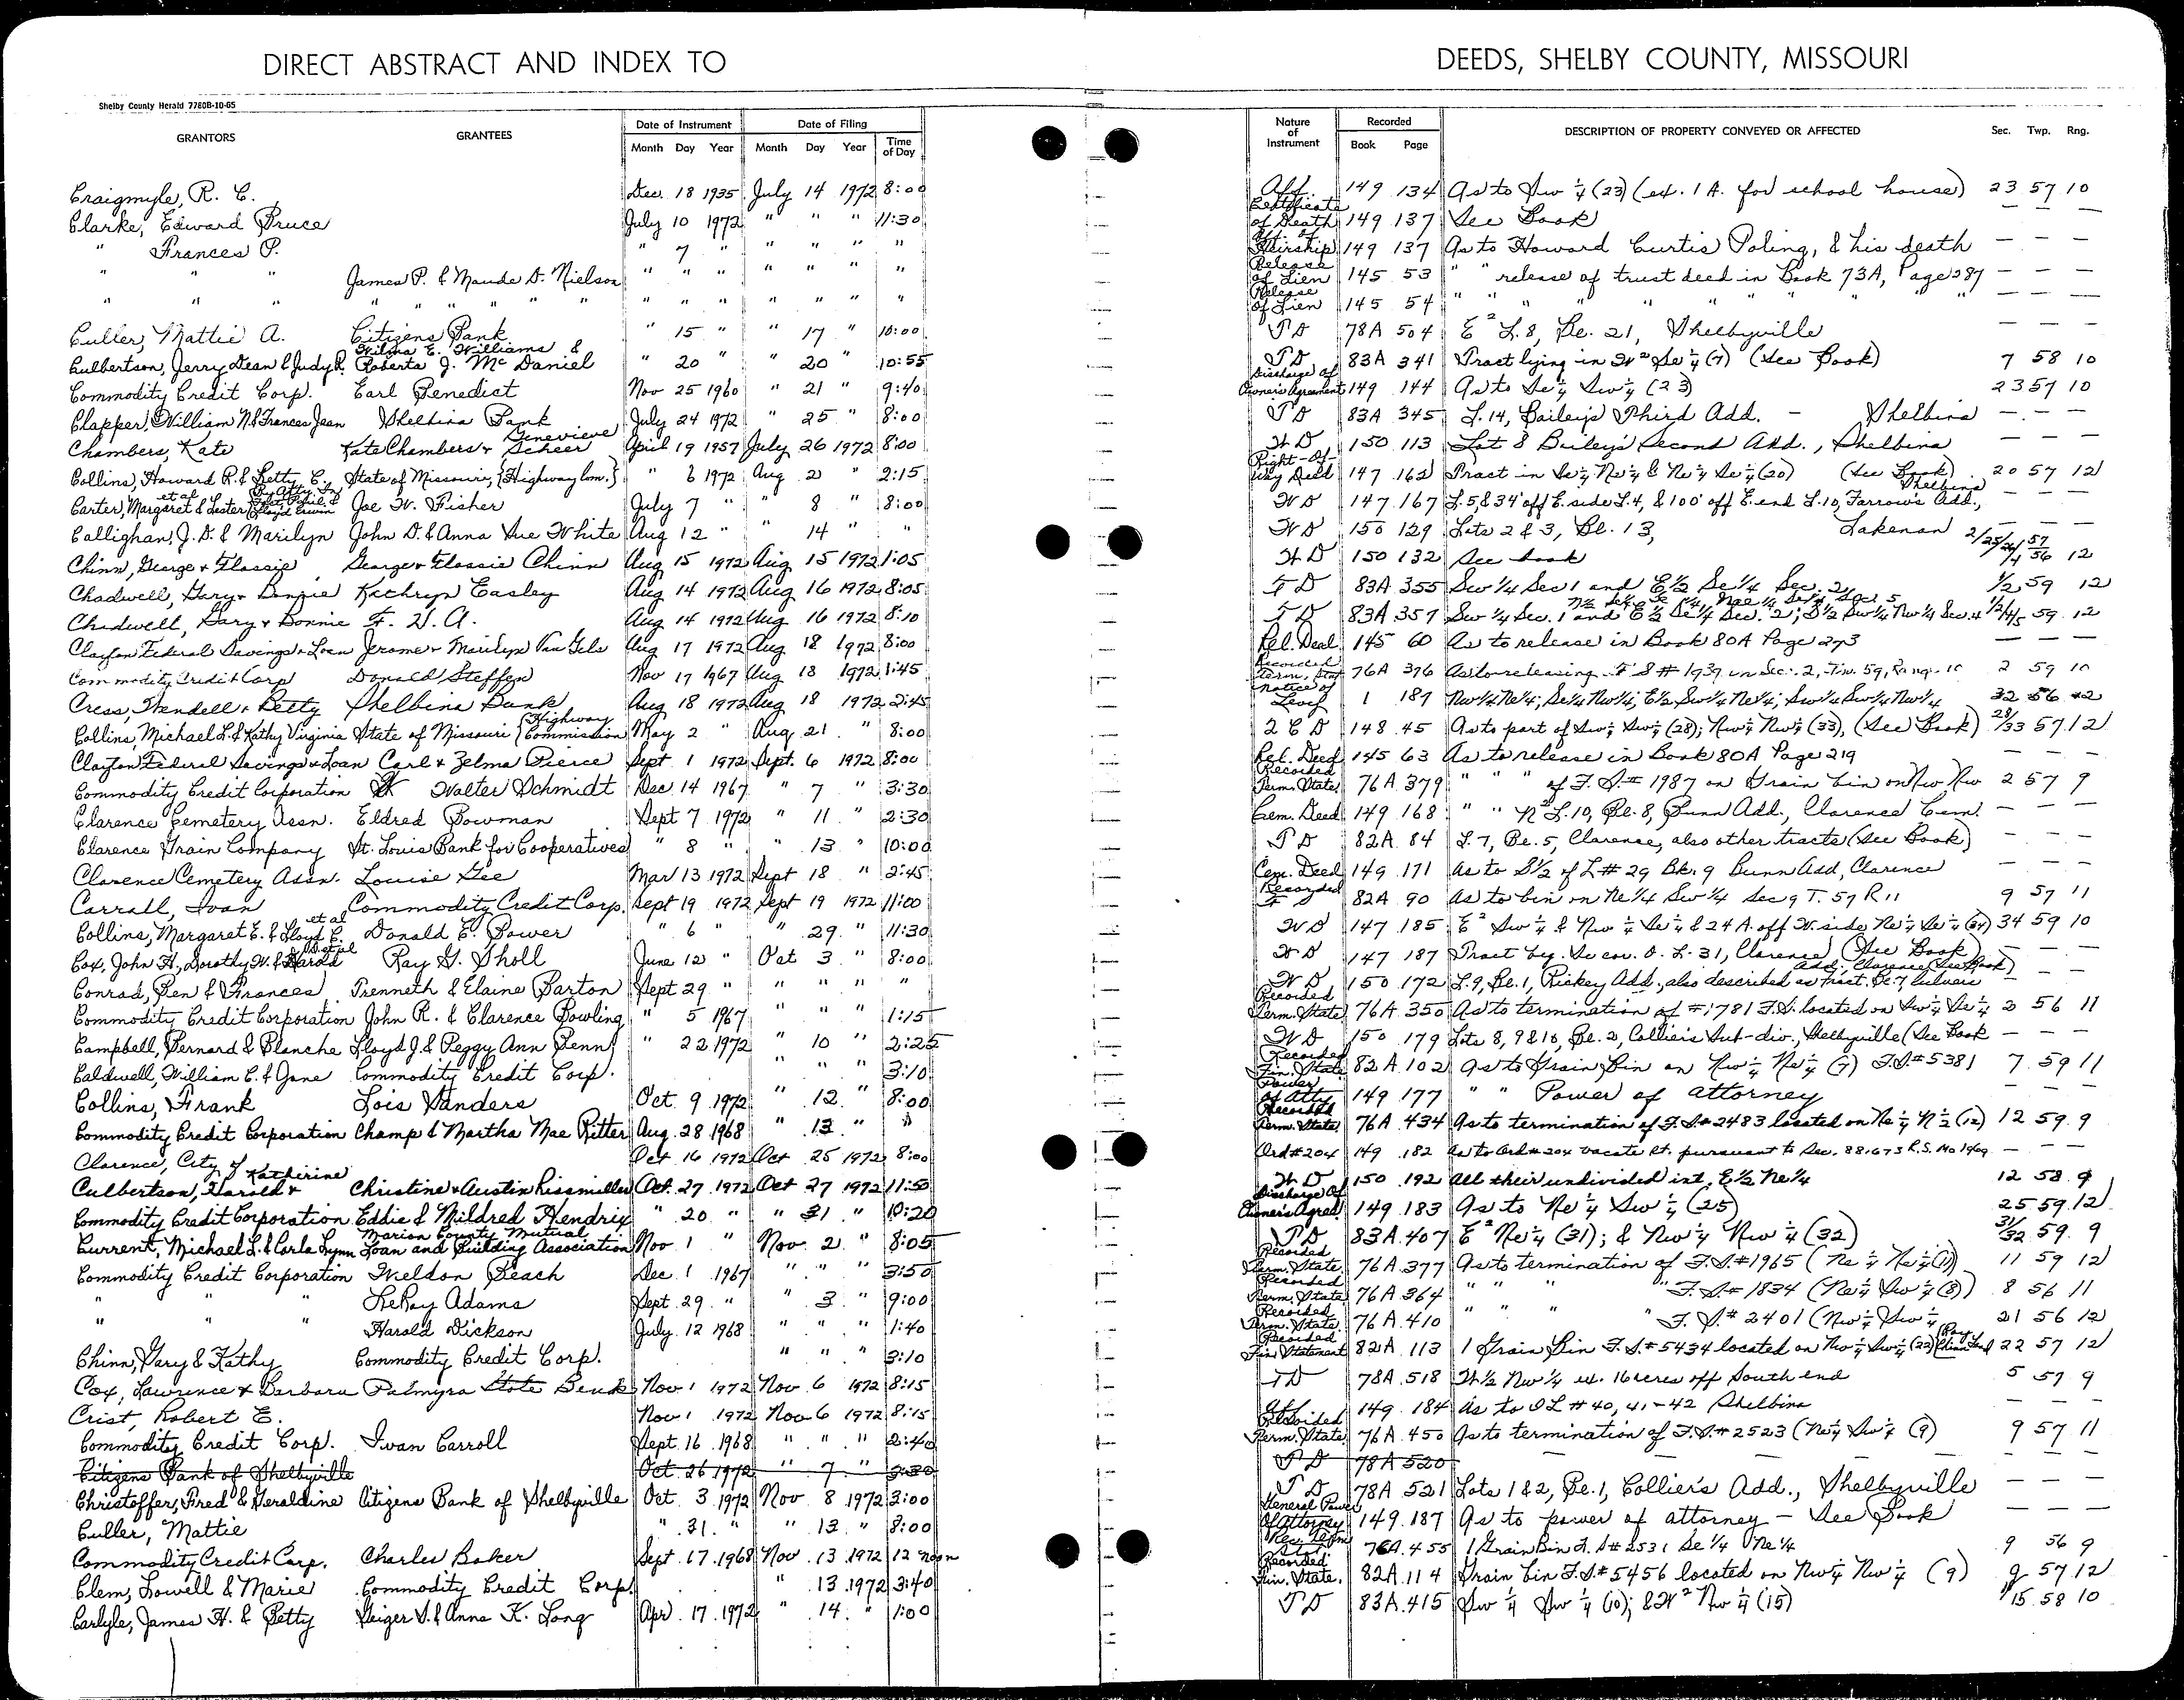 DIRECT ABSTRACT AND INDEX TO DEEDS, SHELBY COUNTY, MISSOURI
Shelby County Herald 7780B-10-65
GRANTORS GRANTEES Date of Instrument Date of Filing Nature of Instrument Recorded DESCRIPTION OF PROPERTY CONVEYED OR AFFECTED Sec. Twp. Rng.
Month Day Year Month Day Year Time of Day Book Page
Craigmyle, R. C. Dec. 18 1935 July 14 1972 8:00 Aff. 149 134 As to Sw 1/4 (23) (ex. 1 A. for school house) 23 57 10
Clarke, Edward Bruce July 10 1972 " " " 11:30 Certificate of Death 149 137 See Book — — —
" Frances P. " 7 " " " " " Aff. of Heirship 149 137 As to Howard Curtis Poling, & his death — — —
" " " James P. & Maude D. Nielson " " " " " " " Release of Lien 145 53 " " release of trust deed in Book 73A, Page 287 — — —
" " " " " " " " " " " " " " " " Release of Lien 145 54 " " " " " " " " " — — —
Culler, Mattie A. Citizens Bank " 15 " " 17 " 10:00 T D 78A 504 E 2 L. 8, Bl. 21, Shelbyville — — —
Culbertson, Jerry Dean & Judy R. Wilma E. Williams & Roberta J. McDaniel " 20 " " 20 " 10:55 T D 83A 341 Tract lying in W 2 Se 1/4 (7) (See Book) 7 58 10
Commodity Credit Corp. Earl Benedict Nov 25 1960 " 21 " 9:40 Discharge of Owner's Agreement 149 144 As to Se 1/4 Sw 1/4 (23) 23 57 10
Clapper, William N. & Frances Jean Shelbina Bank July 24 1972 " 25 " 8:00 T D 83A 345 L. 14, Bailey's Third Add. - Shelbina — — —
Chambers, Kate Kate Chambers + Genevieve Scheer April 19 1957 July 26 1972 8:00 W D 150 113 Lot 8 Baileys Second Add., Shelbina — — —
Collins, Howard R. & Betty C. State of Missouri, {Highway Com.} " 6 1972 Aug 2 " 2:15 Right-Of-Way Deed 147 162 Tract in Se 1/4 Ne 1/4 & Ne 1/4 Se 1/4 (20) (See Book) 20 57 12
Carter, Margaret & Lester et al Joe W. Fisher July 7 " " 8 " 8:00 W D 147 167 L. 5, & 34' off E. side L. 4, & 100' off E. end L. 10, Farrow's Add., Shelbina — — —
Callighan, J. D. & Marilyn John D. & Anna Sue White Aug 12 " " 14 " " W D 150 129 Lots 2 & 3, Bl. 13, Lakenan — — —
Chinn, George + Flossie George + Flossie Chinn Aug 15 1972 Aug 15 1972 1:05 W D 150 132 See book 12
Chadwell, Gary + Bonnie Kathryn Easley Aug 14 1972 Aug 16 1972 8:05 T D 83A 355 Sw 1/4 Sec 1 and E 1/2 Se 1/4 Sec. 2 1/2 59 12
Chadwell, Gary + Bonnie F. H. A. Aug 14 1972 Aug 16 1972 8:10 T D 83A 357 Sw 1/4 Sec. 1 and E 1/2 Se 1/4 Sec. 2; S 1/2 Sw 1/4 Nw 1/4 Sec. 4 59 12
Clayton Federal Savings + Loan Jerome + Marilyn Van Gels Aug 17 1972 Aug 18 1972 8:00 Rel. Deed 145 60 As to release in Book 80A Page 273 — — —
Commodity Credit Corp Donald Steffen Nov 17 1967 Aug 18 1972 1:45 Recorded Term. Stat. 76A 376 As to releasing F S # 1939 on Sec. 2, Tw. 59, Range 10 2 59 10
Cress, Wendell + Betty Shelbina Bank Aug 18 1972 Aug 18 1972 2:45 Notice of Levy 1 187 Nw 1/4 Ne 1/4; Se 1/4 Nw 1/4, E 1/2 Sw 1/4 Ne 1/4, Sw 1/4 Sw 1/4 Nw 1/4 32 56 12
Collins, Michael L. & Kathy Virginia State of Missouri {Highway Commission May 2 " Aug. 21 " 8:00 2 C D 148 45 As to part of Sw 1/4 Sw 1/4 (28); Nw 1/4 Nw 1/4 (33), (See Book) 28/33 57 12
Clayton Federal Savings + Loan Carl + Zelma Pierce Sept 1 1972 Sept. 6 1972 8:00 Rel. Deed 145 63 As to release in Book 80A Page 219 — — —
Commodity Credit Corporation Walter Schmidt Dec 14 1967 " 7 " 3:30 Recorded Term. State. 76A 379 " " " of F. S. # 1987 on Grain bin on Nw Nw 2 57 9
Clarence Cemetery Assn. Eldred Bowman Sept 7 1972 " 11 " 2:30 Cem. Deed 149 168 " " N 2 L. 10, Bl. 8, Bunn Add., Clarence Cem. — — —
Clarence Grain Company St. Louis Bank for Cooperatives " 8 " " 13 " 10:00 T D 82A 84 L. 7, Bl. 5, Clarence, also other tracts (See Book) — — —
Clarence Cemetery Assn. Louise Gee Mar 13 1972 Sept 18 " 2:45 Cem. Deed 149 171 As to S 1/2 of L # 29 Bk. 9 Bunn Add, Clarence — — —
Carrall, Ivan Commodity Credit Corp. Sept 19 1972 Sept 19 1972 11:00 Recorded F S 82A 90 As to bin on Ne 1/4 Sw 1/4 Sec 9 T. 57 R 11 9 57 11
Collins, Margaret E. & Lloyd C. et al Donald E. Power " 6 " " 29 " 11:30 W D 147 185 E 2 Sw 1/4 & Nw 1/4 Se 1/4 & 24 A. off W. side Ne 1/4 Se 1/4 (34) 34 59 10
Cox, John H., Dorothy W. & Harold et al Ray G. Sholl June 12 " Oct 3 " 8:00 W D 147 187 Tract by. Se cor. O. L. 31, Clarence (See Book) — — —
Conrad, Ben & Frances Trenneth & Elaine Barton Sept 29 " " " " " W D 150 172 L. 9, Bl. 1, Rickey Add., also described as tract Bl. 7, Culvers Add., Clarence (See Book) — —
Commodity Credit Corporation John R. & Clarence Bowling " 5 1967 " " " 1:15 Recorded Term. State. 76A 350 As to termination of # 1781 F.S. located on Sw 1/4 Se 1/4 2 56 11
Campbell, Bernard & Blanche Lloyd J. & Peggy Ann Penn " 22 1972 " 10 " 2:25 W D 150 179 Lots 8, 9 & 10, Bl. 2, Collier's Sub-div., Shelbyville (See Book — — —
Caldwell, William C. & Jane Commodity Credit Corp. " " " 3:10 Recorded Fin. State. 82A 102 As to Grain Bin on Nw 1/4 Ne 1/4 (7) F.S. # 5381 7 59 11
Collins, Frank Lois Sanders Oct. 9 1972 " 12 " 8:00 Power of Atty 149 177 " " Power of attorney — — —
Commodity Credit Corporation Champ & Martha Mae Ritter Aug. 28 1968 " 13 " " Recorded Term. State. 76A 434 As to termination of F.S. # 2483 located on Ne 1/4 N 1/2 (12) 12 59 9
Clarence, City of Oct 16 1972 Oct 25 1972 8:00 Ord # 204 149 182 As to Ord # 204 vacate St. pursuant to Sec. 88.673 R.S. Mo 1969 — — —
Culbertson, Harold + Katherine Christine + Austin Lissmiller Oct. 27 1972 Oct 27 1972 11:50 W D 150 192 All their undivided int. E 1/2 Ne 1/4 12 58 9
Commodity Credit Corporation Eddie & Mildred Hendrix " 20 " " 31 " 10:20 Discharge Of Owner's Agree. 149 183 As to Ne 1/4 Sw 1/4 (25) 25 59 12
Current, Michael L. & Carla Lynn Marion County Mutual Loan and Building Association Nov 1 " Nov. 2 " 8:05 T D 83A 407 E 2 Ne 1/4 (31); & Nw 1/4 Nw 1/4 (32) 31/32 59 9
Commodity Credit Corporation Weldon Beach Dec. 1 1967 " " " 3:50 Recorded Term. State. 76A 377 As to termination of F.S. # 1965 (Ne 1/4 Ne 1/4 (11)) 11 59 12
" " " LeRoy Adams Sept. 29 " " 3 " 9:00 Recorded Term. State. 76A 364 " " " " F.S. # 1834 (Ne 1/4 Sw 1/4 (8)) 8 56 11
" " " Harold Dickson July 12 1968 " " " 1:40 Recorded Term. State. 76A 410 " " " " F.S. # 2401 (Nw 1/4 Sw 1/4 21 56 12
Chinn, Gary & Kathy Commodity Credit Corp. " " " 3:10 Recorded Fin. Statement 82A 113 1 Grain Bin F.S. # 5434 located on Nw 1/4 Sw 1/4 (22) 22 57 12
Cox, Lawrence + Barbara Palmyra State Bank Nov 1 1972 Nov. 6 1972 8:15 T D 78A 518 W 1/2 Nw 1/4 ex. 16 acres off South end 5 57 9
Crist, Robert E. Nov 1 1972 Nov 6 1972 8:15 Aff 149 184 As to O L # 40, 41-42 Shelbina — — —
Commodity Credit Corp. Ivan Carroll Sept. 16 1968 " " " 2:40 Recorded Term. State. 76A 450 As to termination of F.S. # 2523 (Ne 1/4 Sw 1/4 (9) 9 57 11
Citizens Bank of Shelbyville Oct. 26 1972 " 7 " 3:30 T D 78A 520
Christoffer, Fred & Geraldine Citizens Bank of Shelbyville Oct. 3 1972 Nov 8 1972 3:00 T D 78A 521 Lots 1 & 2, Bl. 1, Collier's Add., Shelbyville — — —
Culler, Mattie " 31 " " 13 " 8:00 General Power Of Attorney 149 187 As to power of attorney - See Book — — —
Commodity Credit Corp. Charles Baker Sept. 17 1968 Nov. 13 1972 12 noon Rec. Term Stat 76A 455 1 Grain Bin F.S # 2531 Se 1/4 Ne 1/4 9 56 9
Clem, Lowell & Marie Commodity Credit Corp. " 13 1972 3:40 Recorded Fin. State. 82A 114 Grain bin F.S. # 5456 located on Nw 1/4 Nw 1/4 (9) 9 57 12
Carlyle, James H. & Betty Geiger S. & Anna K. Long Apr. 17 1972 " 14 " 1:00 T D 83A 415 Sw 1/4 Sw 1/4 (10); & W 2 Nw 1/4 (15) 15 58 10